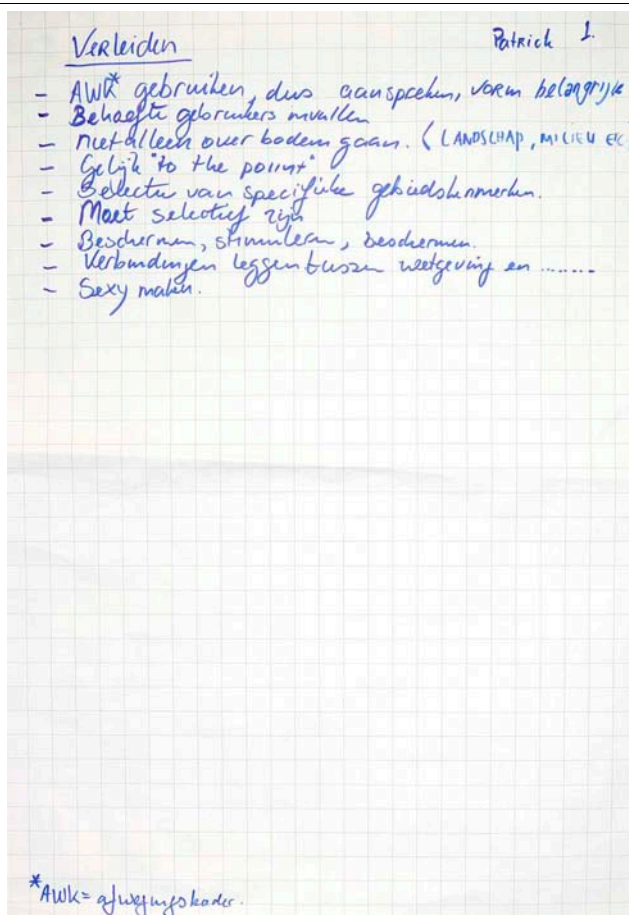 Verleiden
Patrick 1.
- AWK* gebruiken, dus aanspreken, vorm belangrijk
- Behoefte gebruikers invullen
- niet alleen over bodem gaan. (LANDSCHAP, MILIEU EC
- Gelijk "to the point"
- Selectie van specifieke gebiedskenmerken.
- Moet selectief zijn
- Beschermen, stimuleren, beschermen.
- Verbindingen leggen tussen wetgeving en .......
- Sexy maken.
*AWK = afwegingskader.